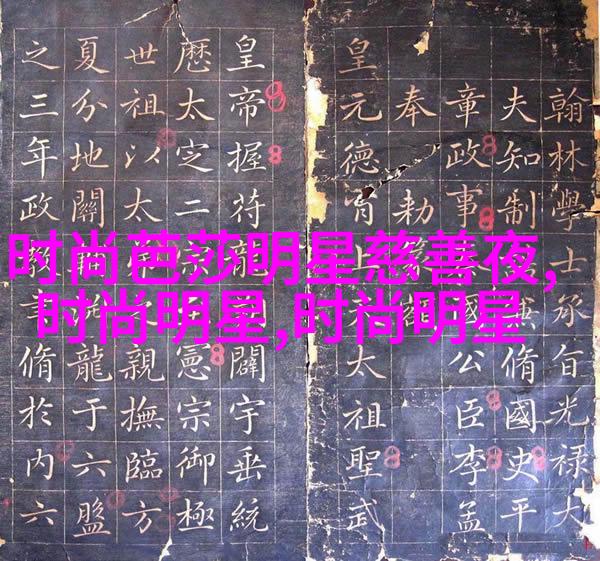 时尚芭莎明星慈善夜,
时尚明星,时尚明星
翰林學士承旨光祿大
夫知制脩國史平
章政事國公臣李孟
奉勅
皇元德太祖聖武
皇帝握符龍闢宇垂統
厯太定二憲宗御極
世祖以太親撫臨方
夏分地關龍于六盤
之三年政脩於内六